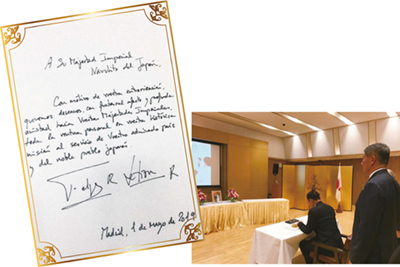 A Su Majestad Imperial
Naruhito del Japón.
Con motivo de vuestra entronización,
queremos desearos con fraternal afecto y profunda
amistad hacia Vuestras Majestades Imperiales,
toda la ventura personal en vuestra histórica
misión al servicio de vuestro admirado país
y del noble pueblo japonés.
Felipe R Letizia R
Madrid, 1 de mayo de 2019